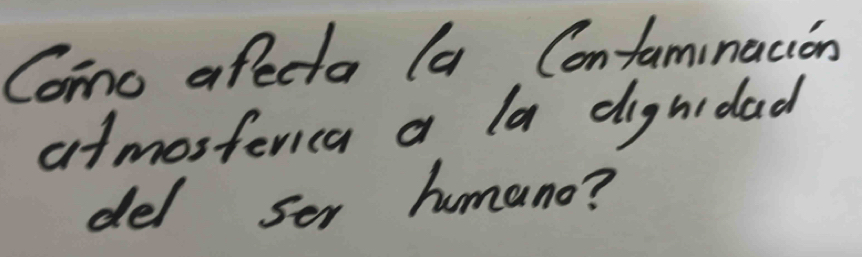 Cómo afecta la Contaminación
atmosferica a la dignidad
del ser humano?